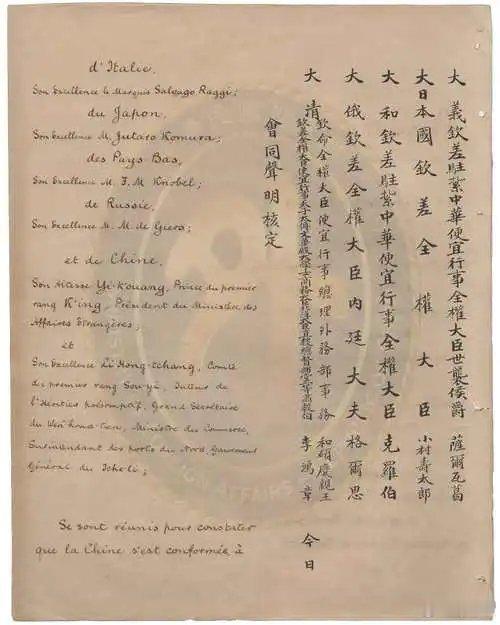 d'Italie,
Son Excellence le Marquis Salvago Raggi;
du Japon,
Son Excellence M. Jutaro Komura;
des Pays Bas,
Son Excellence M. F. M. Knobel;
de Russie,
Son Excellence M. M. de Giers;
et de Chine,
Son Altesse Yi-K'ouang, Prince du premier
rang K'ing, Président du Ministère des
Affaires Etrangères;
et
Son Excellence Li Hong-tchang, Comte
du premier rang Sou-yi, Tuteur de
l'Héritier présomptif, Grand Secrétaire
du Wen-houa-tien, Ministre du Commerce,
Surintendant des ports du Nord, Gouverneur
Général du Tcheli;
Se sont réunis pour constater
que la Chine s'est conformée à
大義欽差駐紮中華便宜行事全權大臣世襲侯爵 薩爾瓦葛
大日本國欽差全權大臣 小村壽太郎
大和欽差駐紮中華便宜行事全權大臣克羅伯
大俄欽差全權大臣內廷大夫格爾思
大清
欽命全權大臣便宜行事總理外務部事務 和碩慶親王
欽差全權大臣便宜行事太子太傅文華殿大學士商務大臣北洋大臣直隸總督部堂一等肅毅伯 李鴻章
今日
會同聲明核定